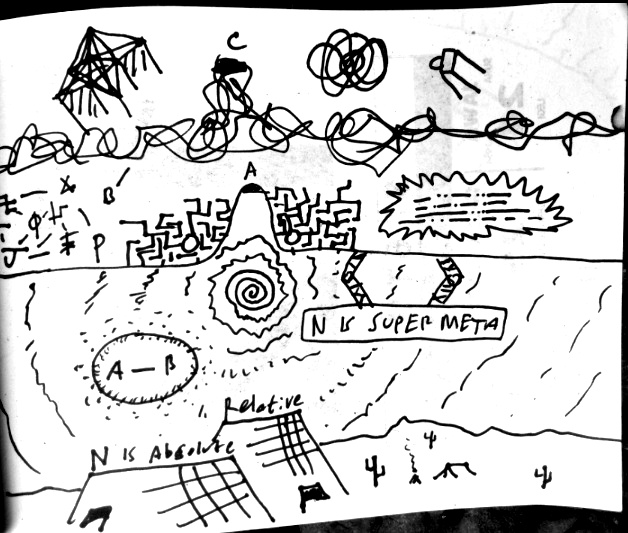 C
A
B
φ
P
N IS SUPER META
A — B
Relative
N IS Absolute